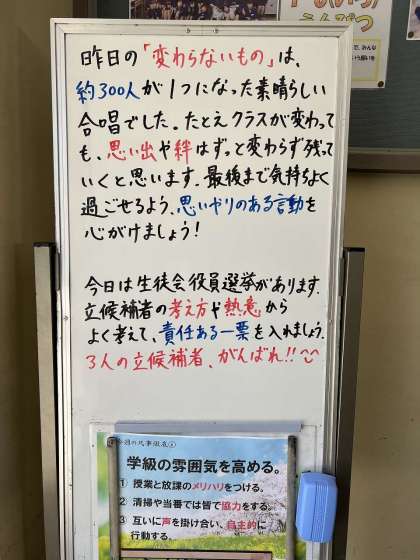 昨日の「変わらないもの」は、
約300人が1つになった素晴らしい
合唱でした。たとえクラスが変わって
も、思い出や絆はずっと変わらず残って
いくと思います。最後まで気持ちよく
過ごせるよう、思いやりのある言動を
心がけましょう!
今日は生徒会役員選挙があります.
立候補者の考え方や熱意から
よく考えて、責任ある一票を入れましょう.
3人の立候補者、がんばれ!!
学級の雰囲気を高める。
1 授業と放課のメリハリをつける。
2 清掃や当番では皆で協力をする。
3 互いに声を掛け合い、自主的に
行動する。